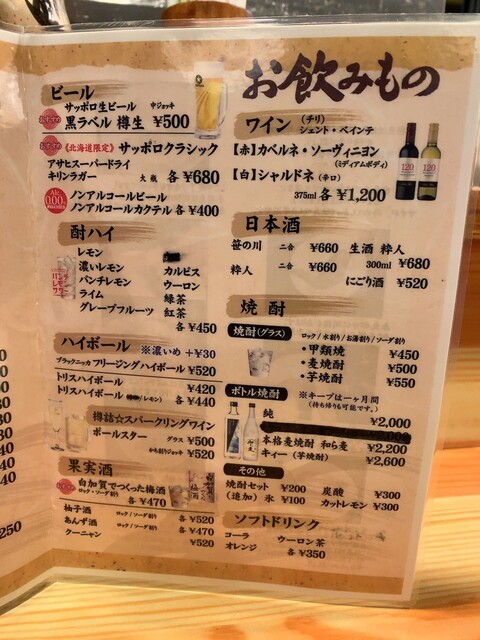 お飲みもの
ビール
サッポロ生ビール 中ジョッキ
黒ラベル 樽生 ¥500
《北海道限定》サッポロクラシック
アサヒスーパードライ
キリンラガー 大瓶 各¥680
ノンアルコールビール
ノンアルコールカクテル 各¥400
酎ハイ
レモン
濃いレモン カルピス
パンチレモン ウーロン
ライム 緑茶
グレープフルーツ 紅茶
各¥450
ハイボール ※濃いめ +¥30
ブラックニッカ フリージングハイボール ¥520
トリスハイボール ¥420
トリスハイボール /レモン) ¥440
樽詰☆スパークリングワイン
ポールスター グラス ¥500
かち割りジョッキ ¥520
果実酒
自加賀でつくった梅酒
ロック・ソーダ割り 各¥470
柚子酒 ロック/ソーダ割り 各¥520
あんず酒 ロック/ソーダ割り 各¥470
クーニャン ¥520
ワイン (チリ) シェント・ベインテ
【赤】カベルネ・ソーヴィニヨン
(ミディアムボディ)
【白】シャルドネ (辛口)
375ml 各¥1,200
120
120
日本酒
笹の川 二合 ¥660 生酒 粋人
300ml ¥680
粋人 二合 ¥660
にごり酒 ¥520
焼酎
焼酎(グラス) ロック/水割り/お湯割り/ソーダ割り
・甲類焼 ¥450
・麦焼酎 ¥500
・芋焼酎 ¥550
ボトル焼酎 ※キープは一ヶ月間
(持ち帰りも可能です。)
純 ¥2,000
本格麦焼酎 和ら麦 ¥2,200
キィー(芋焼酎) ¥2,600
その他
焼酎セット ¥200 炭酸 ¥300
(追加)氷 ¥100 カットレモン ¥300
ソフトドリンク
コーラ ウーロン茶
オレンジ 各¥350
250